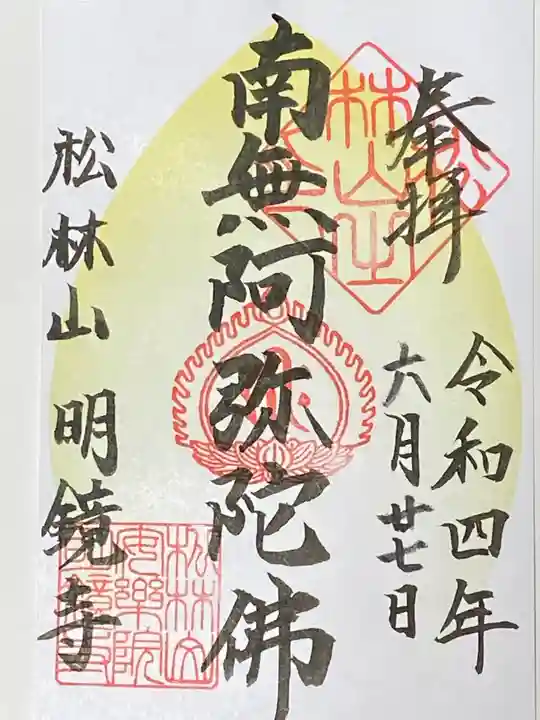 奉拝
令和四年
六月廿七日
南無阿弥陀佛
松林山 明鏡寺
松林山
安樂院